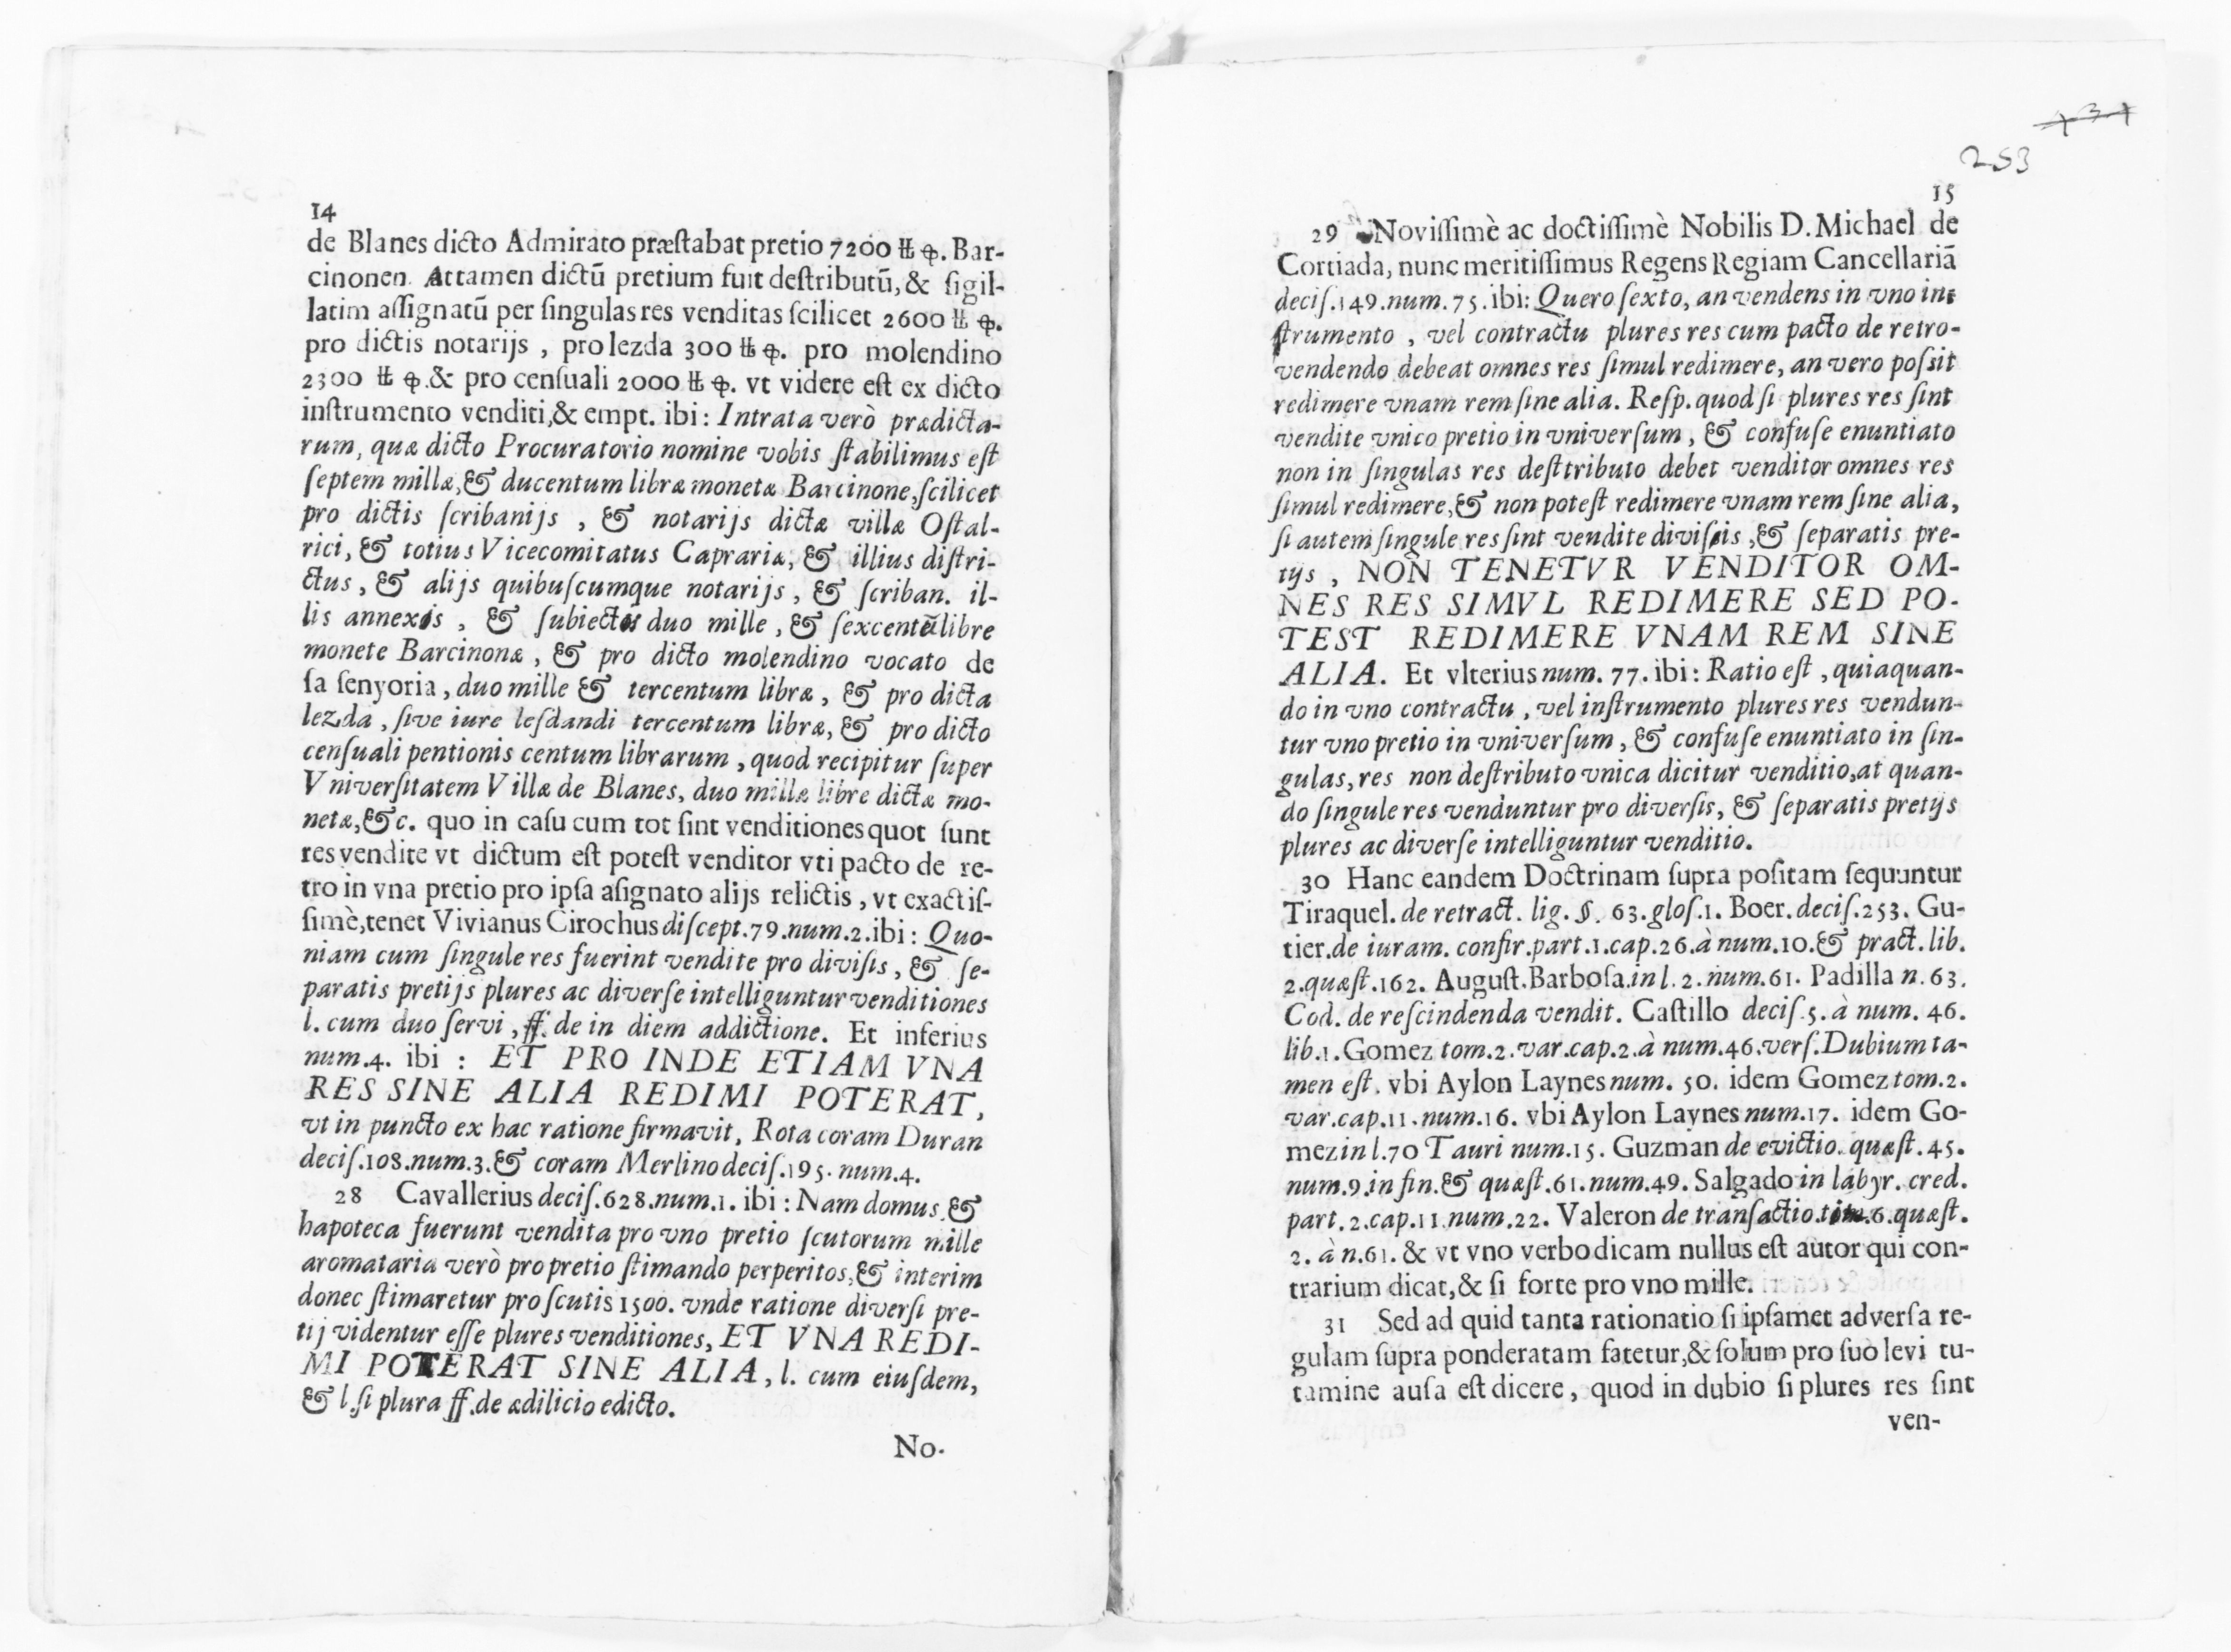 14
de Blanes dicto Admirato præstabat pretio 7200 ℔ ꝕ. Bar-
cinonen. Attamen dictū pretium fuit destributū, & sigil-
latim assignatū per singulas res venditas scilicet 2600 ℔ ꝕ.
pro dictis notarijs , pro lezda 300 ℔ ꝕ. pro molendino
2300 ℔ ꝕ. & pro censuali 2000 ℔ ꝕ. vt videre est ex dicto
instrumento venditi, & empt. ibi : Intrata verò prædicta-
rum, quæ dicto Procuratorio nomine vobis stabilimus est
septem millæ, & ducentum libræ monetæ Barcinone, scilicet
pro dictis scribanijs , & notarijs dictæ villæ Ostal-
rici, & totius Vicecomitatus Caprariæ, & illius distri-
ctus , & alijs quibuscumque notarijs , & scriban. il-
lis annexis , & subiectis duo mille , & sexcentū libre
monete Barcinonæ , & pro dicto molendino vocato de
sa senyoria , duo mille & tercentum libræ , & pro dicta
lezda , sive iure lesdandi tercentum libræ, & pro dicto
censuali pentionis centum librarum , quod recipitur super
Vniversitatem Villæ de Blanes, duo millæ libre dictæ mo-
netæ, &c. quo in casu cum tot sint venditiones quot sunt
res vendite vt dictum est potest venditor vti pacto de re-
tro in vna pretio pro ipsa asignato alijs relictis , vt exactis-
simè, tenet Vivianus Cirochus discept. 79. num. 2. ibi : Quo-
niam cum singule res fuerint vendite pro divisis , & se-
paratis pretijs plures ac diverse intelliguntur venditiones
l. cum duo servi , ff. de in diem addictione. Et inferius
num. 4. ibi : ET PRO INDE ETIAM VNA
RES SINE ALIA REDIMI POTERAT,
vt in puncto ex hac ratione firmavit, Rota coram Duran
decis. 108. num. 3. & coram Merlino decis. 195. num. 4.
28 Cavallerius decis. 628. num. 1. ibi : Nam domus, &
hapoteca fuerunt vendita pro vno pretio scutorum mille
aromataria verò pro pretio stimando per peritos, & interim
donec stimaretur pro scutis 1500. vnde ratione diversi pre-
tij videntur esse plures venditiones, ET VNA REDI-
MI POTERAT SINE ALIA , l. cum eiusdem,
& l. si plura ff. de ædilicio edicto.
No-
253
15
29 Novissimè ac doctissimè Nobilis D. Michael de
Cortiada, nunc meritissimus Regens Regiam Cancellariā
decis. 149. num. 75. ibi : Quero sexto, an vendens in vno in-
strumento , vel contractu plures res cum pacto de retro-
vendendo debeat omnes res simul redimere, an vero possit
redimere vnam rem sine alia. Resp. quod si plures res sint
vendite vnico pretio in vniversum , & confuse enuntiato
non in singulas res desttributo debet venditor omnes res
simul redimere, & non potest redimere vnam rem sine alia,
si autem singule res sint vendite divisis , & separatis pre-
tijs , NON TENETVR VENDITOR OM-
NES RES SIMVL REDIMERE SED PO-
TEST REDIMERE VNAM REM SINE
ALIA. Et vlterius num. 77. ibi : Ratio est , quia quan-
do in vno contractu , vel instrumento plures res vendun-
tur vno pretio in vniversum , & confuse enuntiato in sin-
gulas, res non destributo vnica dicitur venditio, at quan-
do singule res venduntur pro diversis, & separatis pretijs
plures ac diverse intelliguntur venditio.
30 Hanc eandem Doctrinam supra positam sequuntur
Tiraquel. de retract. lig. §. 63. glos. 1. Boer. decis. 253. Gu-
tier. de iuram. confir. part. 1. cap. 26. à num. 10. & pract. lib.
2. quæst. 162. August. Barbosa in l. 2. num. 61. Padilla n. 63.
Cod. de rescindenda vendit. Castillo decis. 5. à num. 46.
lib. 1. Gomez tom. 2. var. cap. 2. à num. 46. vers. Dubium ta-
men est. vbi Aylon Laynes num. 50. idem Gomez tom. 2.
var. cap. 11. num. 16. vbi Aylon Laynes num. 17. idem Go-
mez in l. 70 Tauri num. 15. Guzman de evictio. quæst. 45.
num. 9. in fin. & quæst. 61. num. 49. Salgado in labyr. cred.
part. 2. cap. 11. num. 22. Valeron de transactio. tit. 6. quæst.
2. à n. 61. & vt vno verbo dicam nullus est autor qui con-
trarium dicat, & si forte pro vno mille.
31 Sed ad quid tanta rationatio si ipsamet adversa re-
gulam supra ponderatam fatetur, & solum pro suo levi tu-
tamine ausa est dicere , quod in dubio si plures res sint
ven-